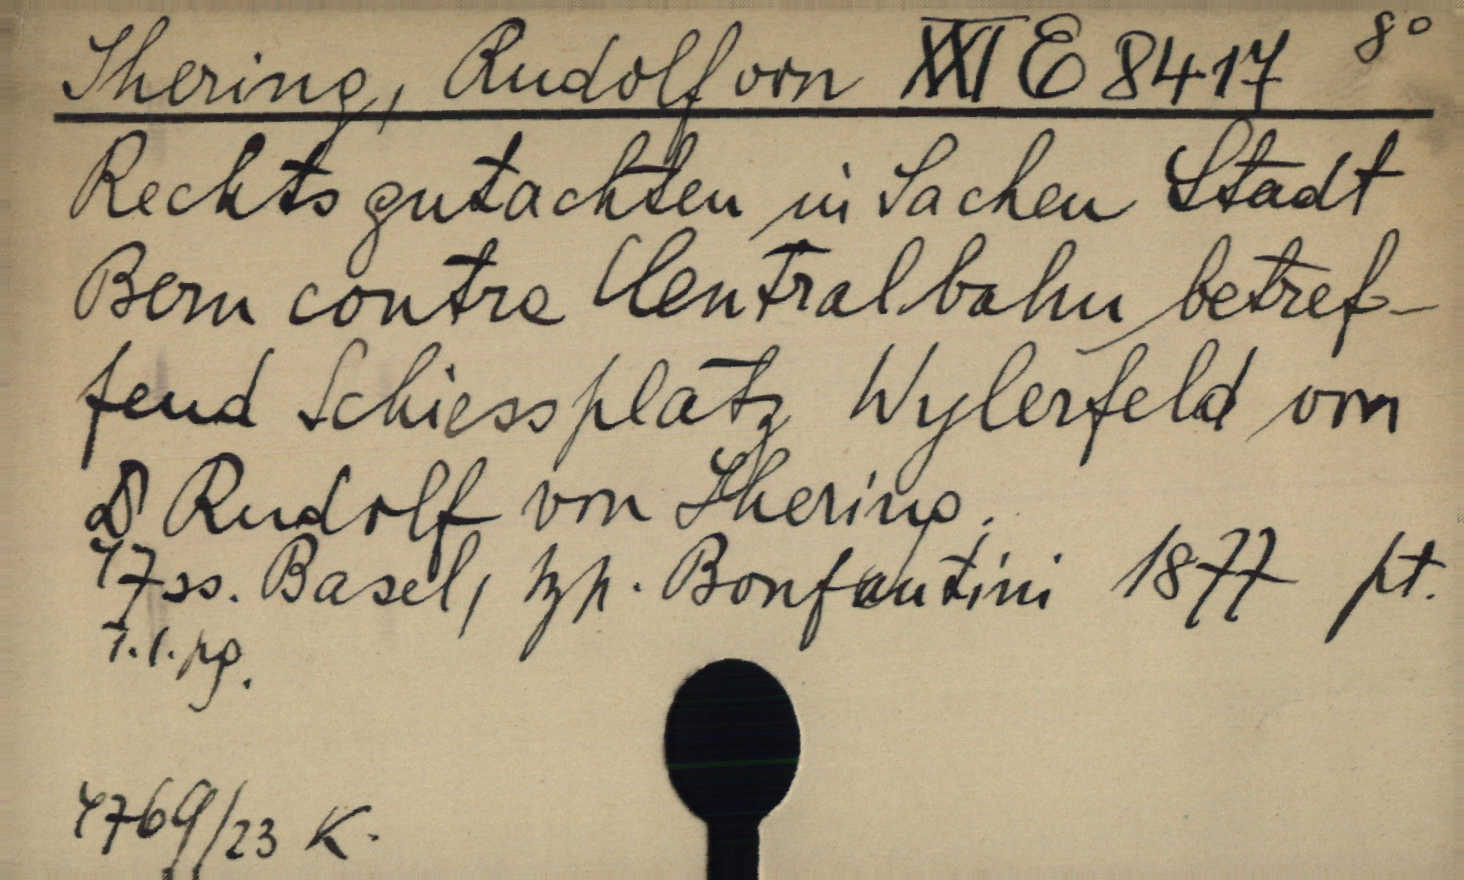 Ihering, Rudolf von XXI E 8417 8°
Rechtsgutachten in Sachen Stadt
Bern contra Centralbahn betref-
fend Schiessplatz Wylerfeld von
Dr Rudolf von Ihering.
47 ss. Basel, typ. Bonfantini 1877 pt.
T.l. pg.
4769/23 K.